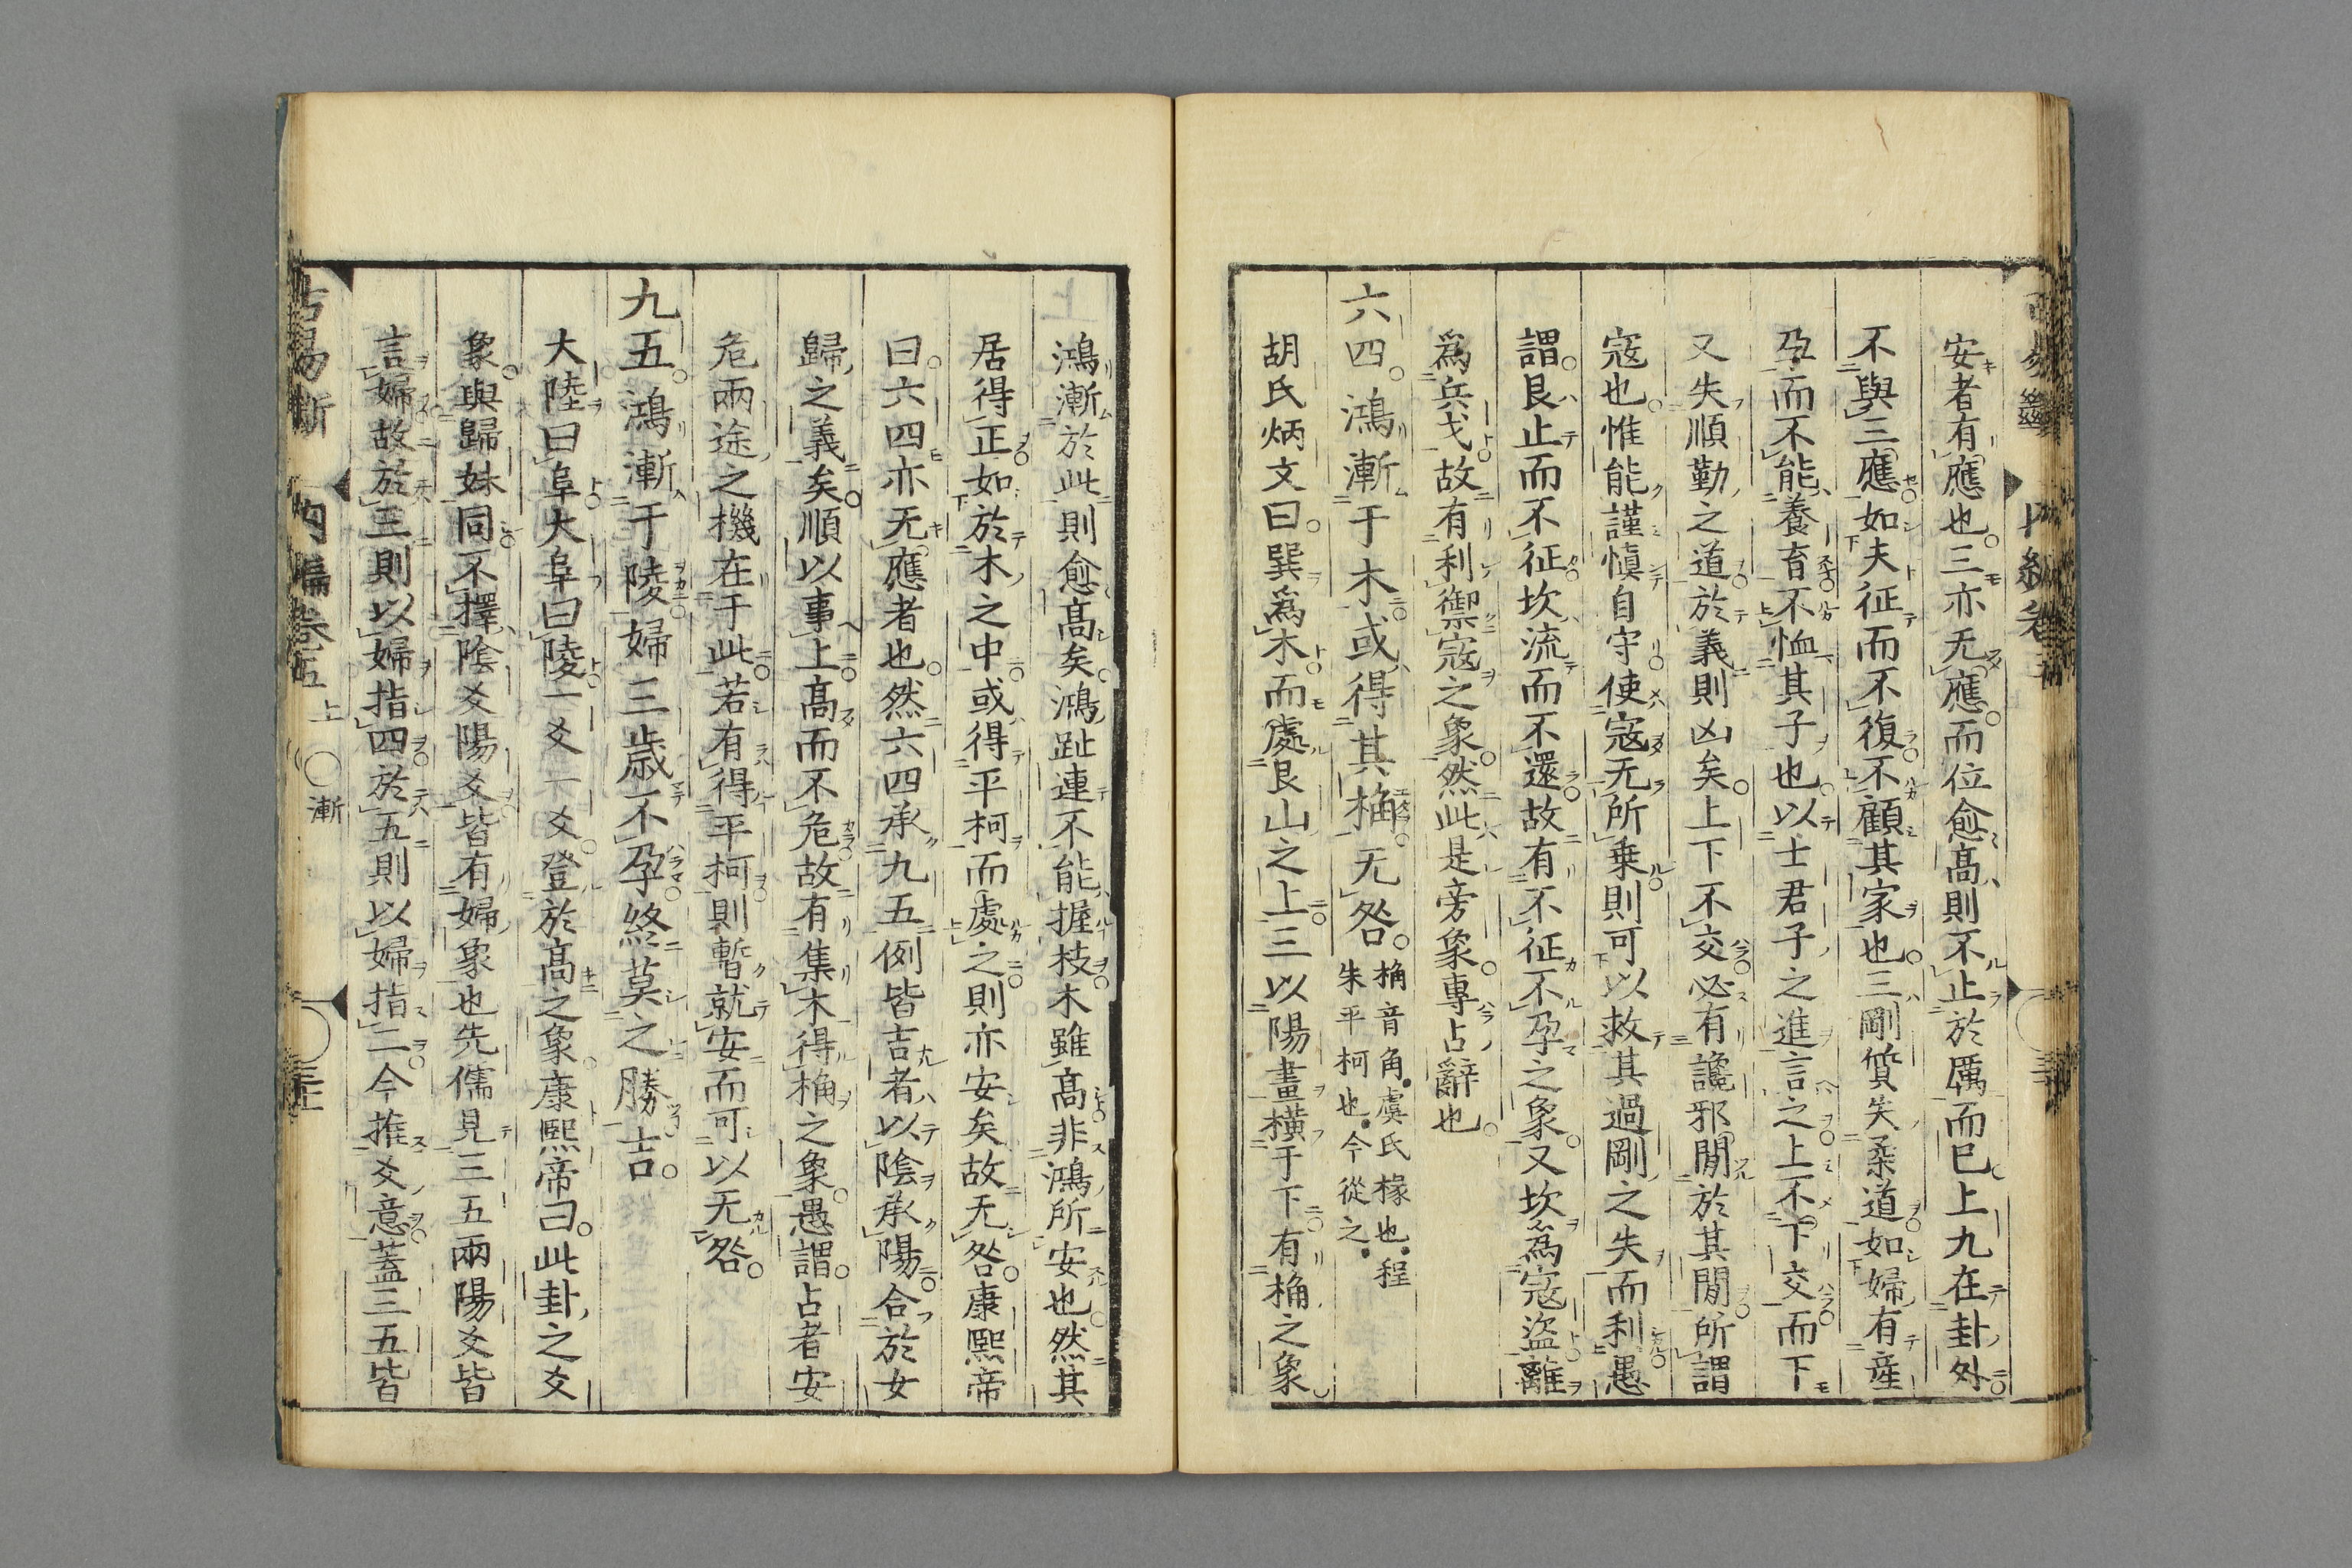 安者有應也三亦无應而位愈高則不止於厲而已上九在卦外
不與三應如夫征而不復不顧其家也三剛質失柔道如婦有産
孕而不能養育不恤其子也以士君子之進言之上不下交而下
又失順勤之道於義則凶矣上下不交必有讒邪間於其間所謂
寇也惟能謹慎自守使寇无所乗則可以救其過剛之失而利愚
謂艮止而不征坎流而不還故有不征不孕之象又坎爲寇盜離
爲兵戈故有利禦寇之象然此是旁象專占辭也
六四鴻漸于木或得其桷无咎
桷音角虞氏椽也程
朱平柯也今從之
胡氏炳文曰巽爲木而處艮山之上三以陽畫橫于下有桷之象
鴻漸於此則愈高矣鴻趾連不能握枝木雖高非鴻所安也然其
居得正如於木之中或得平柯而處之則亦安矣故无咎康熙帝
曰六四亦无應者也然六四承九五例皆吉者以陰承陽合於女
歸之義矣順以事上高而不危故有集木得桷之象愚謂占者安
危兩途之機在于此若有得平柯則暫就安而可以无咎
九五鴻漸于陵婦三歳不孕終莫之勝吉
大陸曰阜大阜曰陵一爻一爻登於高之象康熙帝曰此卦之爻
象與歸妹同不擇陰爻陽爻皆有婦象也先儒見三五兩陽爻皆
言婦故於三則以婦指四於五則以婦指二今推爻意蓋三五皆
古易斷
內編卷五
上
漸